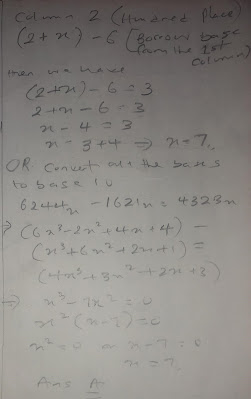 Column 2 (Hundred Place)
(2 + x) - 6 [Borrow base
from the 1st
column]
then we have
(2+x) - 6 = 3
2 + x - 6 = 3
x - 4 = 3
x = 3 + 4 ⇒ x = 7.
OR Convert all the bases
to base 10
6244x - 1621x = 4323x
⇒ (6x³ + 2x² + 4x + 4) -
(x³ + 6x² + 2x + 1) =
(4x³ + 3x² + 2x + 3)
⇒ x³ - 7x² = 0
x² (x - 7) = 0
x² = 0 or x - 7 = 0
x = 7.
Ans A